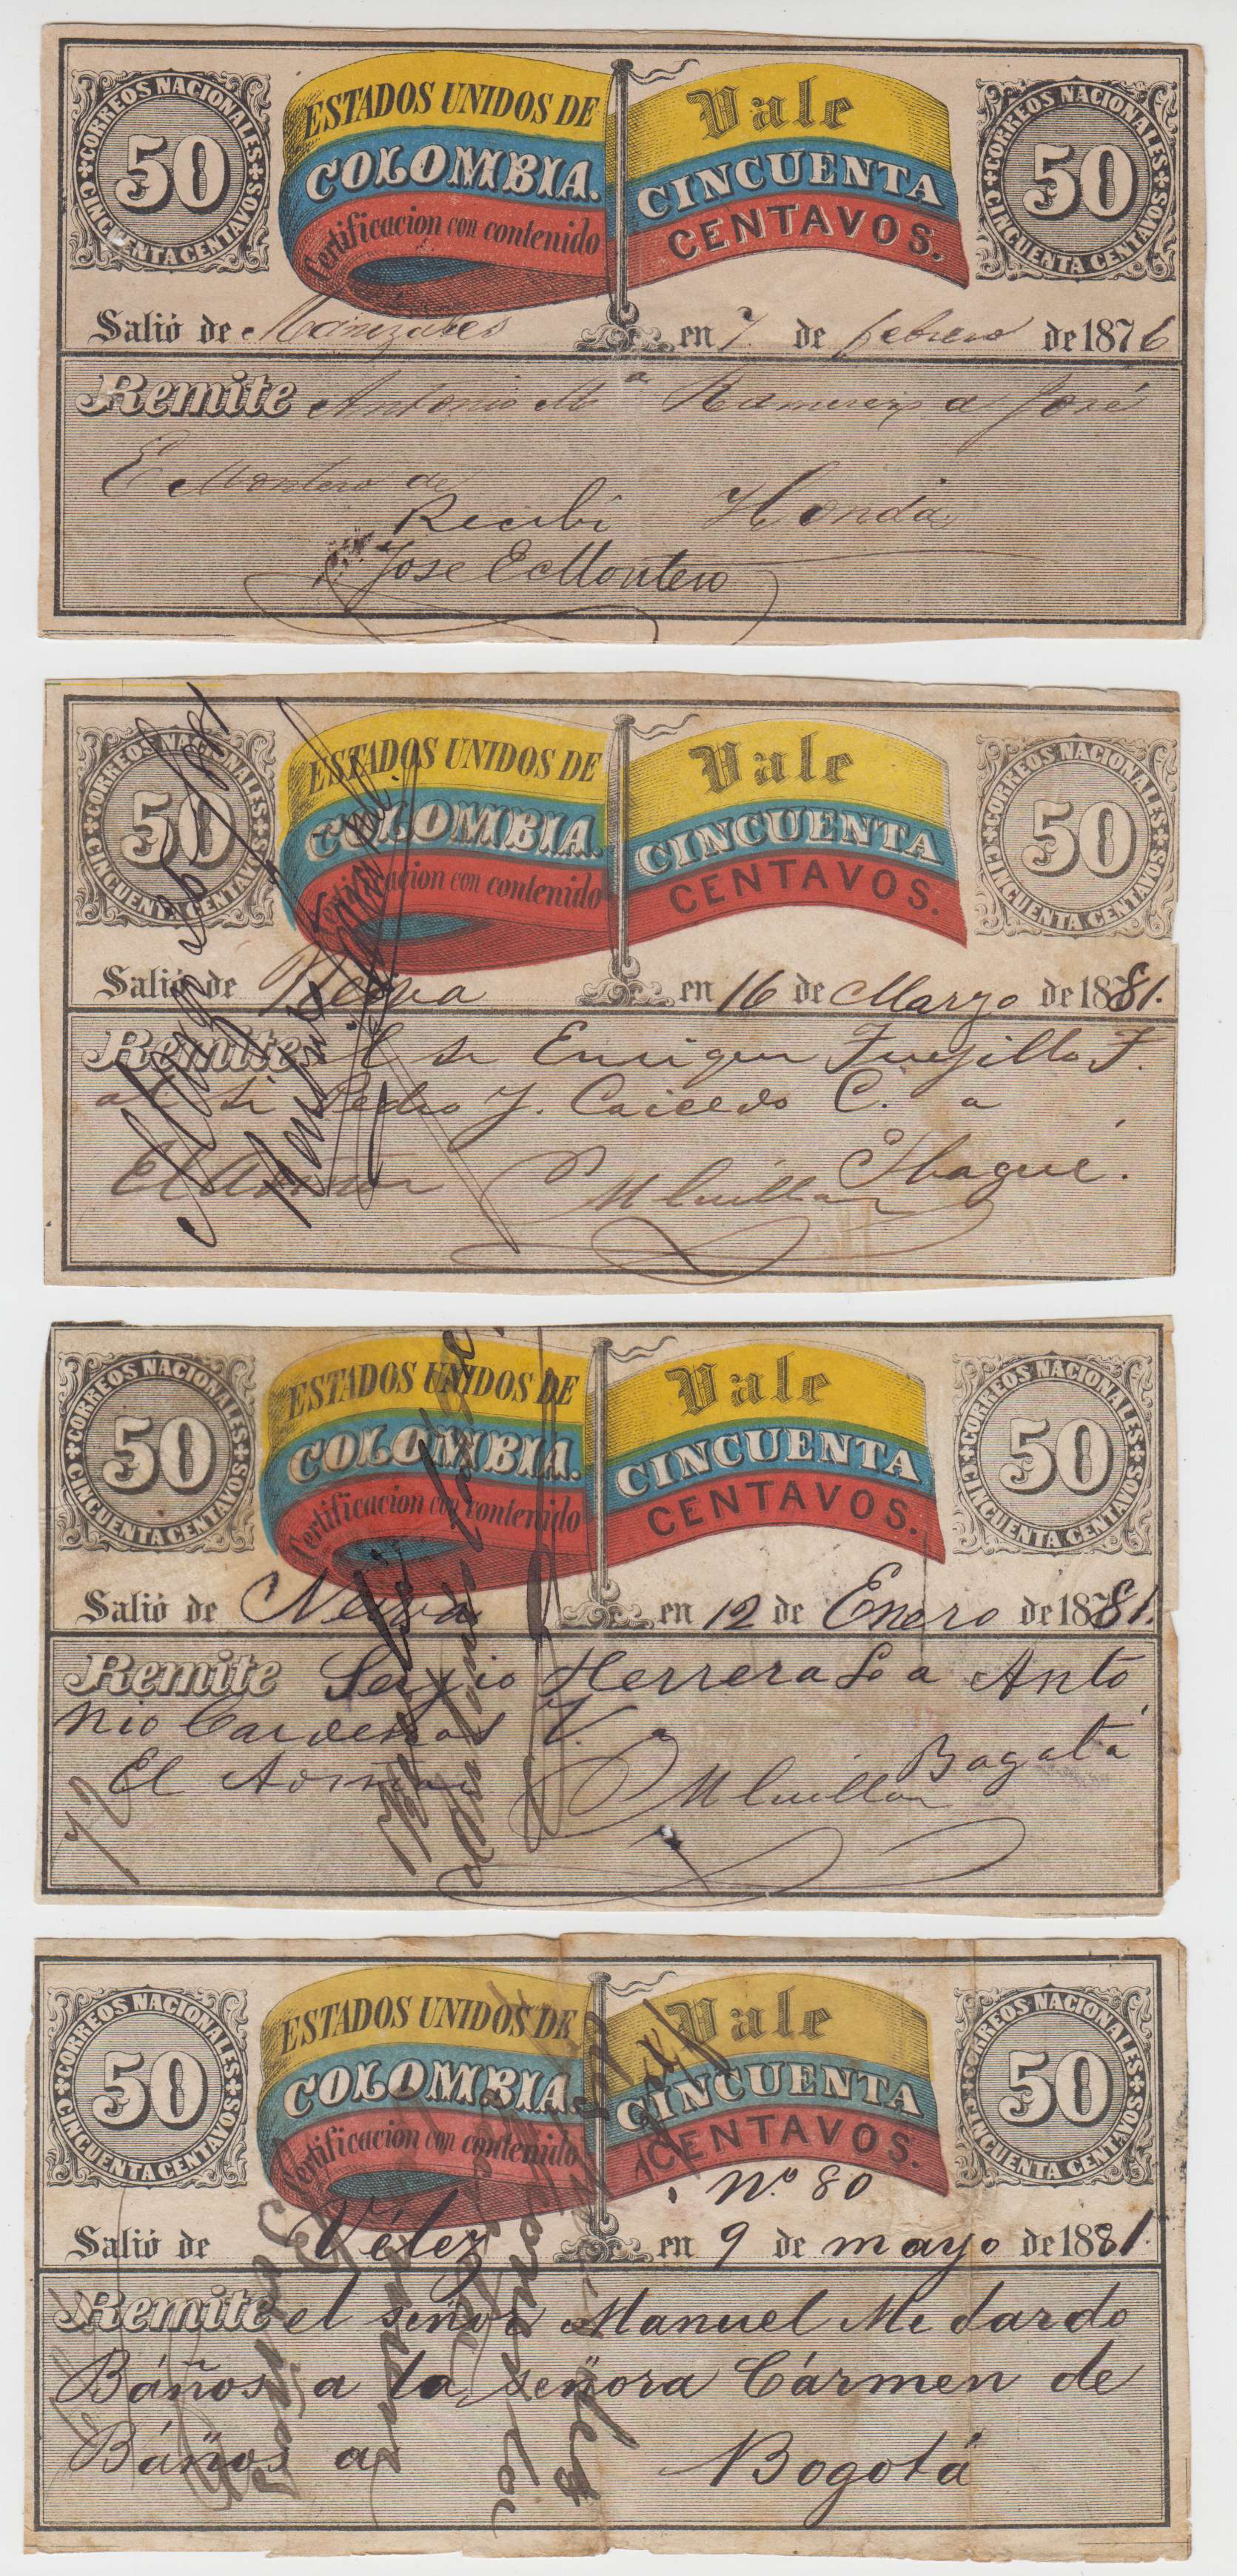 CORREOS NACIONALES
50
CINCUENTA CENTAVOS
ESTADOS UNIDOS DE
COLOMBIA.
Certificacion con contenido
Vale
CINCUENTA
CENTAVOS.
CORREOS NACIONALES
50
CINCUENTA CENTAVOS
Salió de Manizales en 7 de febrero de 1876
Remite Antonio Ma Ramirez a José
E Montero de
Honda
Recibí
Jose E Montero
CORREOS NACIONALES
50
CINCUENTA CENTAVOS
ESTADOS UNIDOS DE
COLOMBIA.
Certificacion con contenido
Vale
CINCUENTA
CENTAVOS.
CORREOS NACIONALES
50
CINCUENTA CENTAVOS
Salió de Neiva en 16 de Marzo de 1881.
Remite el Sr Enrique Trujillo F.
al Sr Pedro J. Caicedo C. a
Ibagué.
El
CORREOS NACIONALES
50
CINCUENTA CENTAVOS
ESTADOS UNIDOS DE
COLOMBIA.
Certificacion con contenido
Vale
CINCUENTA
CENTAVOS.
CORREOS NACIONALES
50
CINCUENTA CENTAVOS
Salió de Neiva en 12 de Enero de 1881.
Remite Sergio Herrera a Anto
nio Cardenas V.
Bogotá
El
72
CORREOS NACIONALES
50
CINCUENTA CENTAVOS
ESTADOS UNIDOS DE
COLOMBIA.
Certificacion con contenido
Vale
CINCUENTA
CENTAVOS.
CORREOS NACIONALES
50
CINCUENTA CENTAVOS
No. 80
Salió de Vélez en 9 de mayo de 1881.
Remite el señor Manuel Medardo
Báños a la señora Cármen de
Báños a Bogotá